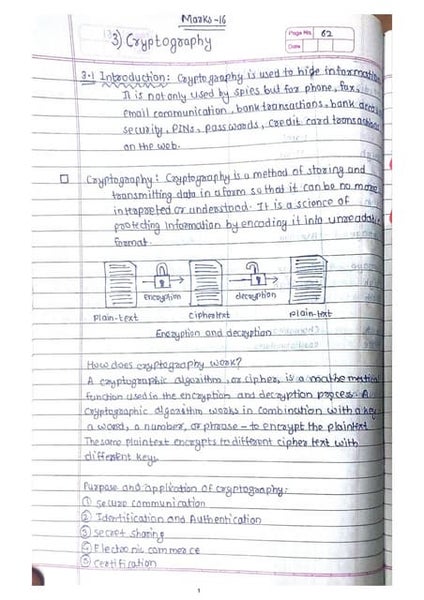 Marks-16
3) Cryptography
Page No. 62
Date
3.1 Introduction: Cryptography is used to hide information
It is not only used by spies but for phone, fax,
email communication, bank transactions, bank
security, PINs, passwords, credit card transactions
on the web.
Cryptography: Cryptography is a method of storing and
transmitting data in a form so that it can be no
intrepreted or understood. It is a science of
protecting information by encoding it into unreadable
format.
encryption decryption
Plain-text Ciphertext plain-text
Encryption and decryption
How does cryptography work?
A cryptographic algorithm, or cipher, is a mathematical
function used in the encryption and decryption process. A
cryptographic algorithm works in combination with a key
a word, a number, or phrase - to encrypt the plaintext
The same plaintext encrypts to different cipher text with
different key.
Purpose and application of cryptography:
① Secure communication
② Identification and Authentication
③ secret sharing
④ Electronic commerce
⑤ certification
1